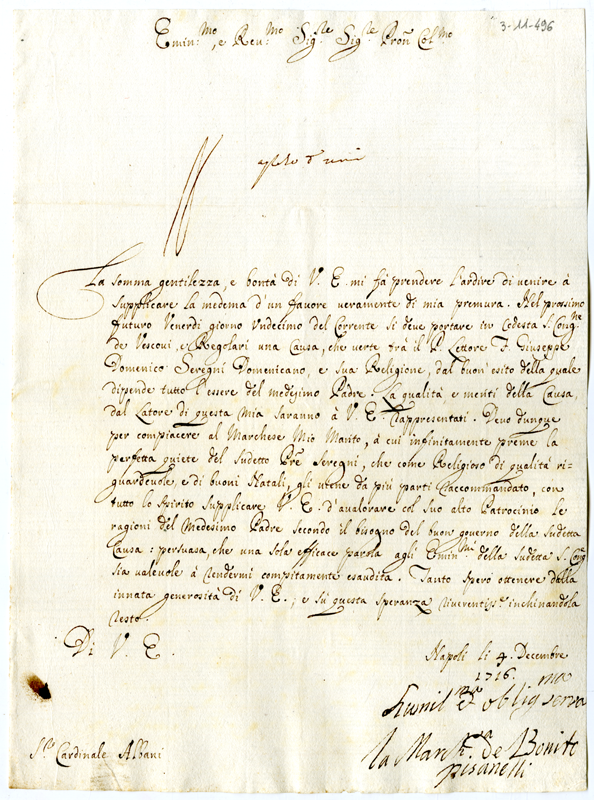 3-11-496
Emin:mo, e Reu:mo Sig:re Sig:re Pron Col:mo
La somma gentilezza, e bontà di V. E. mi fà prendere l'ardire di uenire à
supplicare la medema d'un fauore ueramente di mia premura. Nel prossimo
futuro Venerdì giorno Vndecimo del Corrente si deue portare in Codesta S. Cong.ne
de Vescoui, e Regolari una Causa, che uerte frà il P. Lettore F. Giuseppe
Domenico Seregni Domenicano, e sua Religione, dal buon esito della quale
dipende tutto l'essere del medesimo Padre. La qualità e meriti della Causa,
dal Latore di questa mia saranno à V. E. rappresentati. Deuo dunque
per compiacere al Marchese Mio Marito, à cui infinitamente preme la
perfetta quiete del sudetto Pre Seregni, che come Religioso di qualità ri-
guardeuole, e di buoni Natali, gli uiene da più parti raccommandato, con
tutto lo spirito supplicare V. E. d'aualorare col suo alto Patrocinio le
ragioni del Medesimo Padre secondo il bisogno del buon gouerno della sudetta
Causa: persuasa, che una sola efficace parola agli Emin:mi della sudetta S. Cong
sia valeuole à rendermi compitamente esaudita. Tanto spero ottenere dalla
innata generosità di V. E.; e sù questa speranza riuerentis.te inchinandola
resto.
Di V. E.
Napoli li 4. Decembre
1716.
Humil:ma et oblig:ma serua
la March:a de Bonito
pisanelli
S:r Cardinale Albani